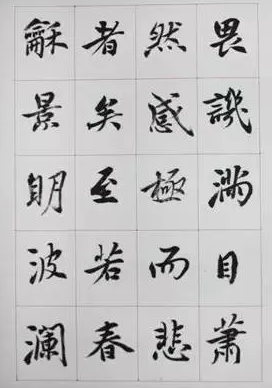 畏譏滿目蕭
然感極而悲
者矣至若春
龢景明波瀾